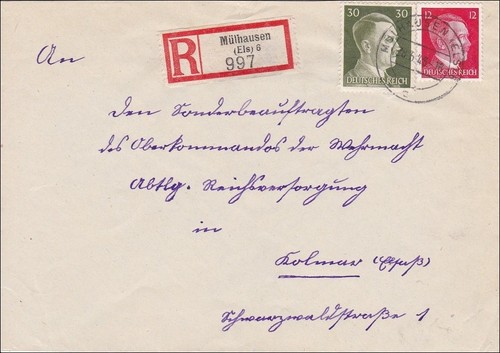 R
Mülhausen
(Els) 6
997
30 30
DEUTSCHES REICH
12
DEUTSCHES REICH
An
den Sonderbeauftragten
des Oberkommandos der Wehrmacht
Abtlg. Reichsversorgung
in
Kolmar (Elsaß)
Schwarzwaldstraße 1